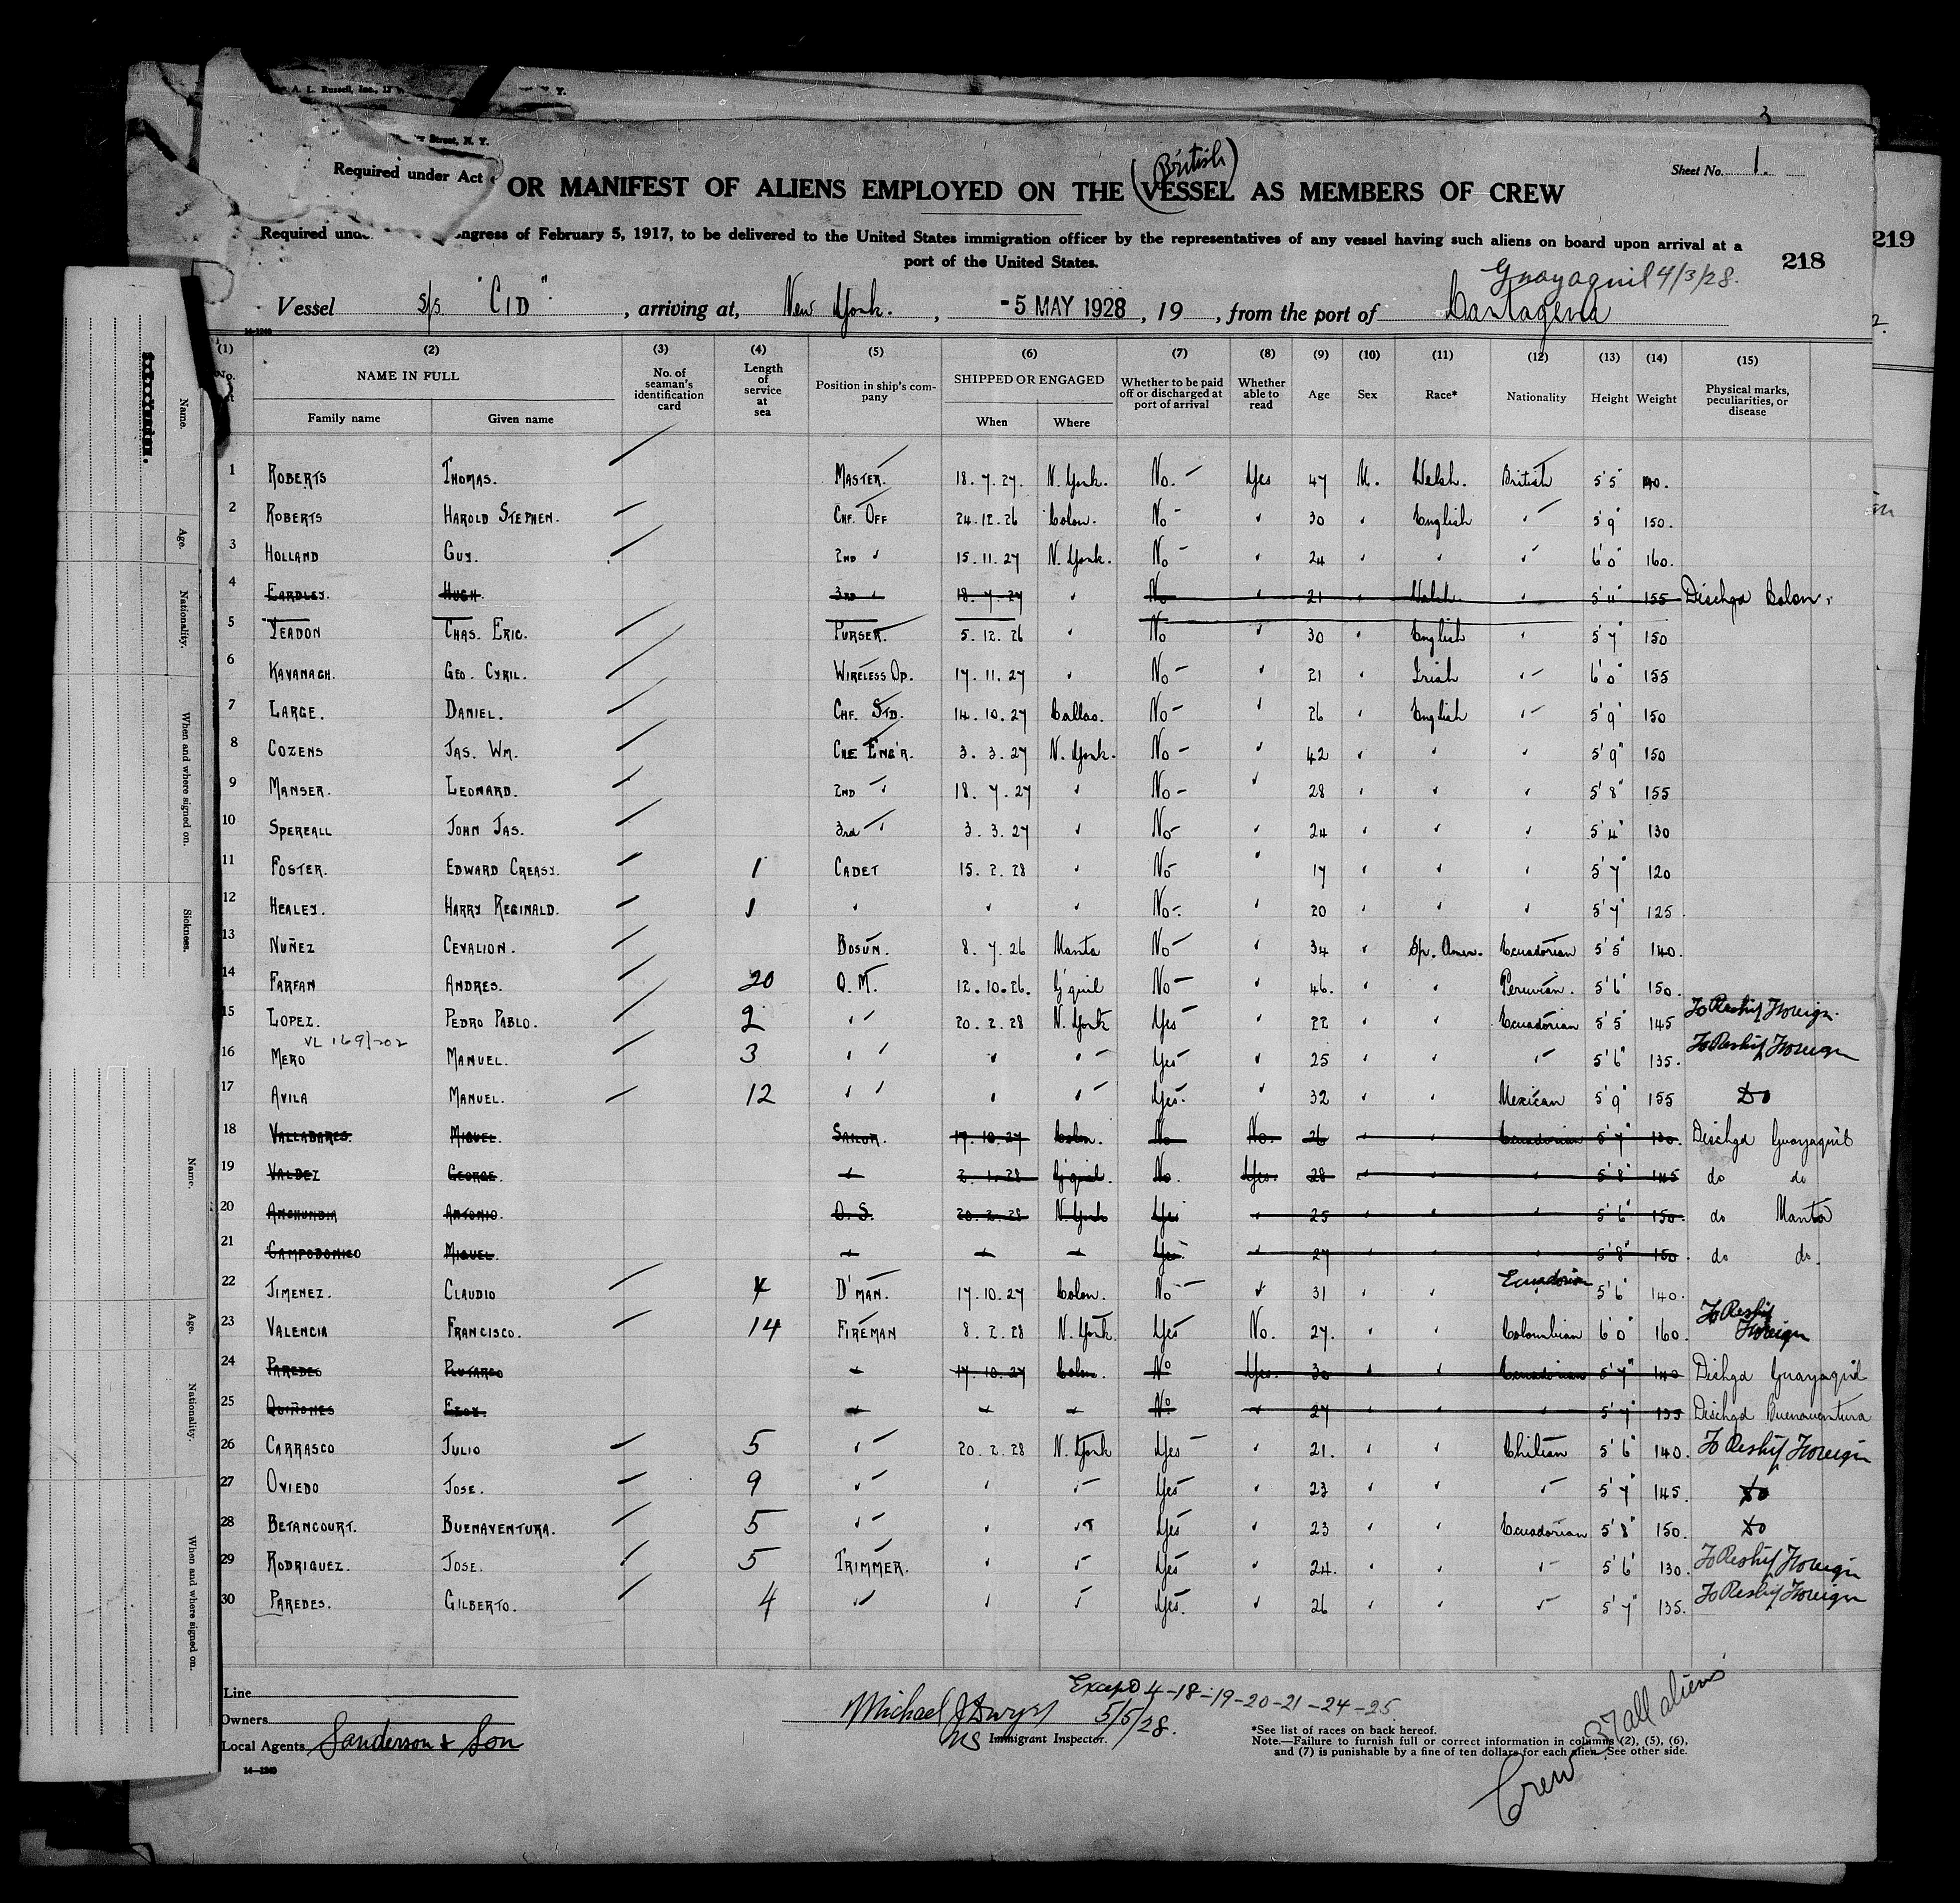 A. L. Russell, Inc., 13
Y.
Street, N. Y.
3
Required under Act
(British)
Sheet No. 1.
OR MANIFEST OF ALIENS EMPLOYED ON THE VESSEL AS MEMBERS OF CREW
Required und ngress of February 5, 1917, to be delivered to the United States immigration officer by the representatives of any vessel having such aliens on board upon arrival at a
port of the United States.
218
219
Guayaquil 4/3/28.
Vessel s/s "CID" , arriving at, New York. , -5 MAY 1928 , 19 , from the port of Cartagena
14-1240
(1) (2) (3) (4) (5) (6) (7) (8) (9) (10) (11) (12) (13) (14) (15)
No. NAME IN FULL No. of seaman's identification card Length of service at sea Position in ship's company SHIPPED OR ENGAGED Whether to be paid off or discharged at port of arrival Whether able to read Age Sex Race* Nationality Height Weight Physical marks, peculiarities, or disease
Family name Given name When Where
1 ROBERTS THOMAS. MASTER. 18.7.27. N. York. No. Yes 47 M. Welsh. British 5'5" 140.
2 ROBERTS HAROLD STEPHEN. CHF. OFF 24.12.26 Colon. No 30 English 5'9" 150.
3 HOLLAND GUY. 2ND 15.11.27 N. York. No 24 6'0" 160.
4 EARDLEY. HUGH. 3RD 18.7.27 No 21 Welsh. 5'11" 155 Dischgd Colon.
5 YEADON CHAS. ERIC. PURSER. 5.12.26 No 30 English 5'7" 150
6 KAVANAGH. GEO. CYRIL. WIRELESS OP. 17.11.27 No 21 Irish 6'0" 155
7 LARGE. DANIEL. CHF. STD. 14.10.27 Callao. No 26 English 5'9" 150
8 COZENS JAS. WM. CHF ENG'R. 3.3.27 N. York. No 42 5'9" 150
9 MANSER. LEONARD. 2ND 18.7.27 No 28 5'8" 155
10 SPEREALL JOHN JAS. 3rd 3.3.27 No 24 5'4" 130
11 FOSTER. EDWARD CREASY. 1 CADET 15.2.28 No 17 5'7" 120
12 HEALEY. HARRY REGINALD. 1 No. 20 5'7" 125.
13 NUÑEZ CEVALION. BOSUN. 8.7.26 Manta No 34 Sp. Amer. Ecuadorian 5'5" 140.
14 FARFAN ANDRES. 20 Q.M. 12.10.26. G'quil No 46. Peruvian. 5'6" 150.
15 LOPEZ. PEDRO PABLO. 2 20.2.28 N. York Yes 22 Ecuadorian 5'5" 145 To Reship Foreign.
VL 169/202
16 MERO MANUEL. 3 Yes 25 5'6" 135. To Reship Foreign
17 AVILA MANUEL. 12 Yes. 32 Mexican 5'9" 155 Do
18 VALLADARES. MIGUEL. SAILOR. 17.10.27 Colon. No No. 26 Ecuadorian 5'7" 130. Dischgd Guayaquil
19 VALDEZ GEORGE. 2.1.28 G'quil. No. Yes. 28 5'8" 145 do do
20 ANCHUNDIA ANTONIO. O.S. 20.2.28 N. York Yes 25 5'6" 150. do Manta
21 CAMPODONICO MIGUEL. Yes. 27 5'8" 150. do do.
22 JIMENEZ. CLAUDIO 4 D'MAN. 17.10.27 Colon. No 31 Ecuadorian 5'6" 140.
23 VALENCIA FRANCISCO. 14 FIREMAN 8.2.28 N. York. Yes No. 27. Colombian 6'0" 160. To Reship Foreign
24 PAREDES PLUTARCO 17.10.27 Colon. No Yes. 30 Ecuadorian 5'7" 140 Dichgd Guayaquil
25 QUIÑONES ELOY. No 27 5'7" 135 Dischgd Buenaventura
26 CARRASCO JULIO 5 20.2.28 N. York Yes 21. Chilian 5'6" 140. To Reship Foreign
27 OVIEDO JOSE. 9 Yes 23 5'7" 145. Do
28 BETANCOURT. BUENAVENTURA. 5 Yes 23 Ecuadorian 5'8" 150. Do
29 RODRIGUEZ. JOSE. 5 TRIMMER. Yes 24. 5'6" 130. To Reship Foreign
30 PAREDES. GILBERTO. 4 Yes. 26 5'7" 135. To Reship Foreign
Line
Owners
Local Agents Sanderson & Son
14-1240
Except 4-18-19-20-21-24-25.
Michael J Dwyer 5/5/28.
US Immigrant Inspector.
*See list of races on back hereof.
Note.—Failure to furnish full or correct information in columns (2), (5), (6),
and (7) is punishable by a fine of ten dollars for each alien. See other side.
Crew 37 all aliens
Name.
Age.
Nationality.
When and where signed on.
Sickness.
Name.
Age.
Nationality.
When and where signed on.